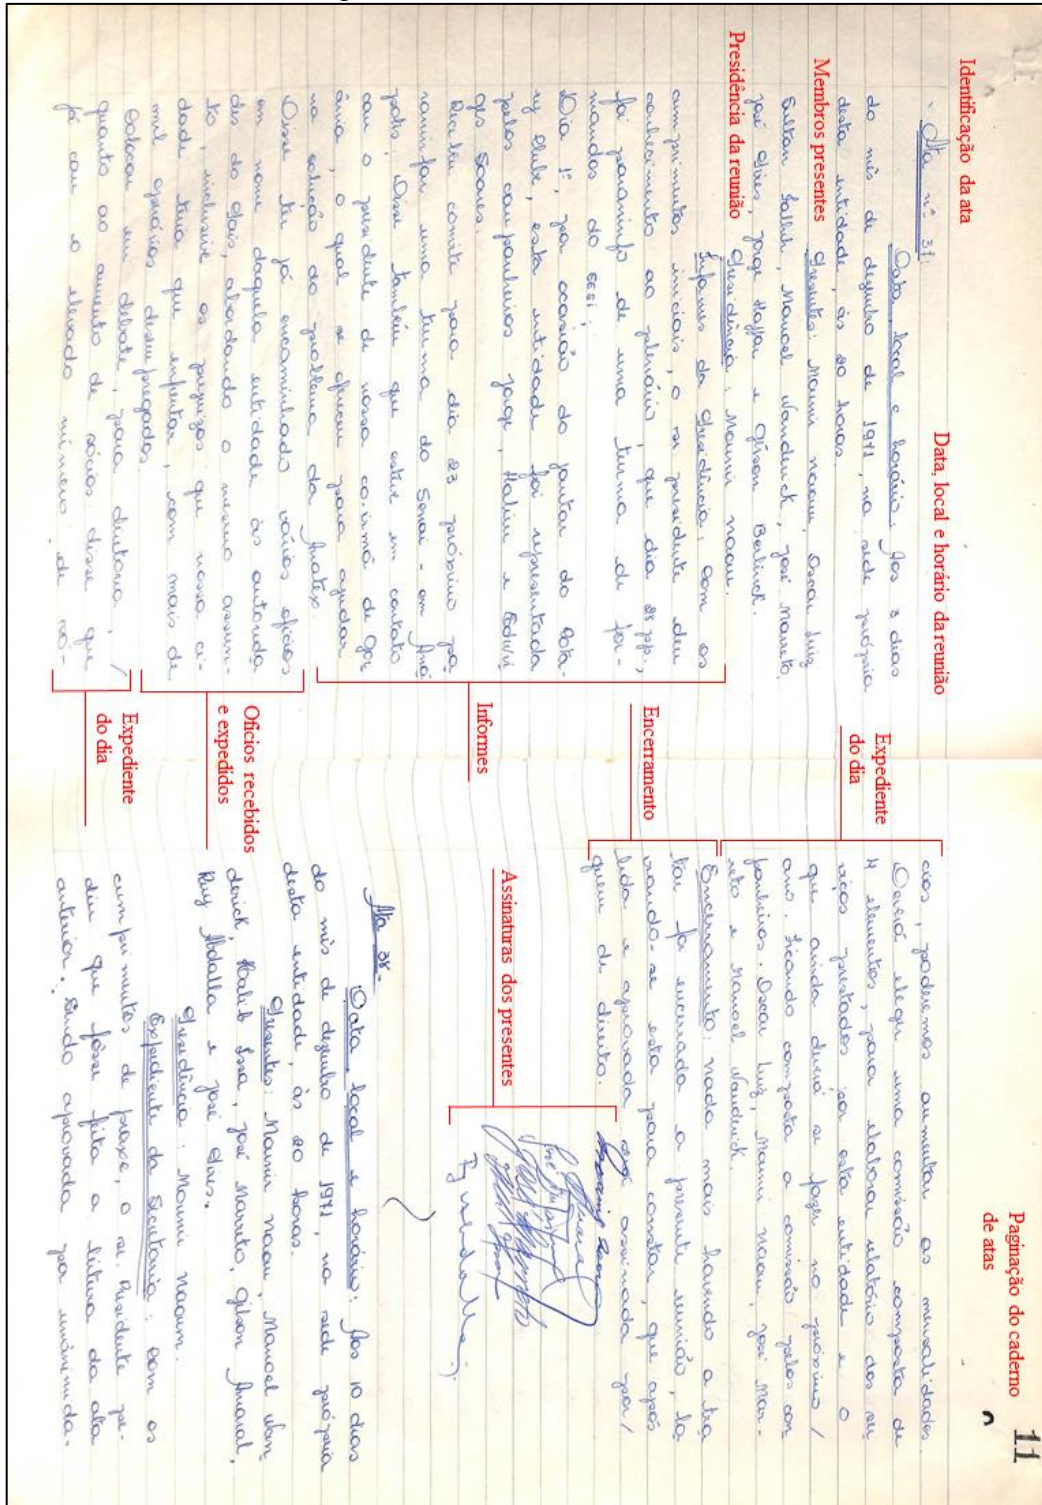 Identificação da ata
Data, local e horário da reunião
Paginação do caderno
de atas
11
Membros presentes
Presidência da reunião
Expediente
do dia
Encerramento
Informes
Ofícios recebidos
e expedidos
Expediente
do dia
Assinaturas dos presentes
Ata nº 37:
Data, local e horário: Aos 3 dias
do mês de dezembro de 1971, na sede própria
desta entidade, às 20 horas.
Presentes: Mounir Naoum, Oscar Luiz
José Pires, Jorge e Gilson
Presidência: Mounir Naoum.
Informes da Presidência: Com os
cumprimentos iniciais, o sr. presidente deu
conhecimento ao plenário, que dia 28 pp.,
foi paraninfo de uma turma de for-
mandos do SESI;
Dia 1º, por ocasião do jantar do Rota-
ry Clube, esta entidade foi representada
pelos companheiros Jorge, Halim e
Soares.
Recebeu convite para dia 23 próximo pa-
raninfar uma turma do Senai - em Aná
polis. Disse também que esteve em contato
com o presidente de nossa co-irmã de Goi
ânia, o qual se ofereceu para ajudar
na solução do problema da
Disse ter já encaminhado vários ofícios
em nome daquela entidade às autorida
des do País, abordando o mesmo assun-
to, inclusive os prejuízos que nossa ci-
dade teria que enfrentar, com mais de
mil operários desempregados.
Colocou em debate, para diretoria, /
quanto ao aumento de sócios: disse que
já com o elevado número de só-
cios, poderemos aumentar as mensalidades.
Deverá eleger uma comissão composta de
4 elementos, para elaborar relatório dos ser
viços prestados por esta entidade e o
que ainda deverá se fazer no próximo /
ano. Ficando composta a comissão pelos com
panheiros: Oscar Luiz, Mounir Naoum, José Mar-
reto e Manoel Vanderick.
Encerramento: Nada mais havendo a tra
tar foi encerrada a presente reunião, la-
vrando-se esta para constar, que após
lida e aprovada será assinada por /
quem de direito.
Ata 38-
Data, local e horário: Aos 10 dias
do mês de dezembro de 1971, na sede própria
desta entidade, às 20 horas.
Presentes: Mounir Naoum, Manoel Van
derick, Halib Issa, José Marreto, Gilson Amaral,
Ruy Abdalla e José Pires.
Presidência: Mounir Naoum.
Expediente da Secretaria: Com os
cumprimentos de praxe, o sr. Presidente pe-
diu que fôsse feita a leitura da ata
anterior. Sendo aprovada por unanimida-